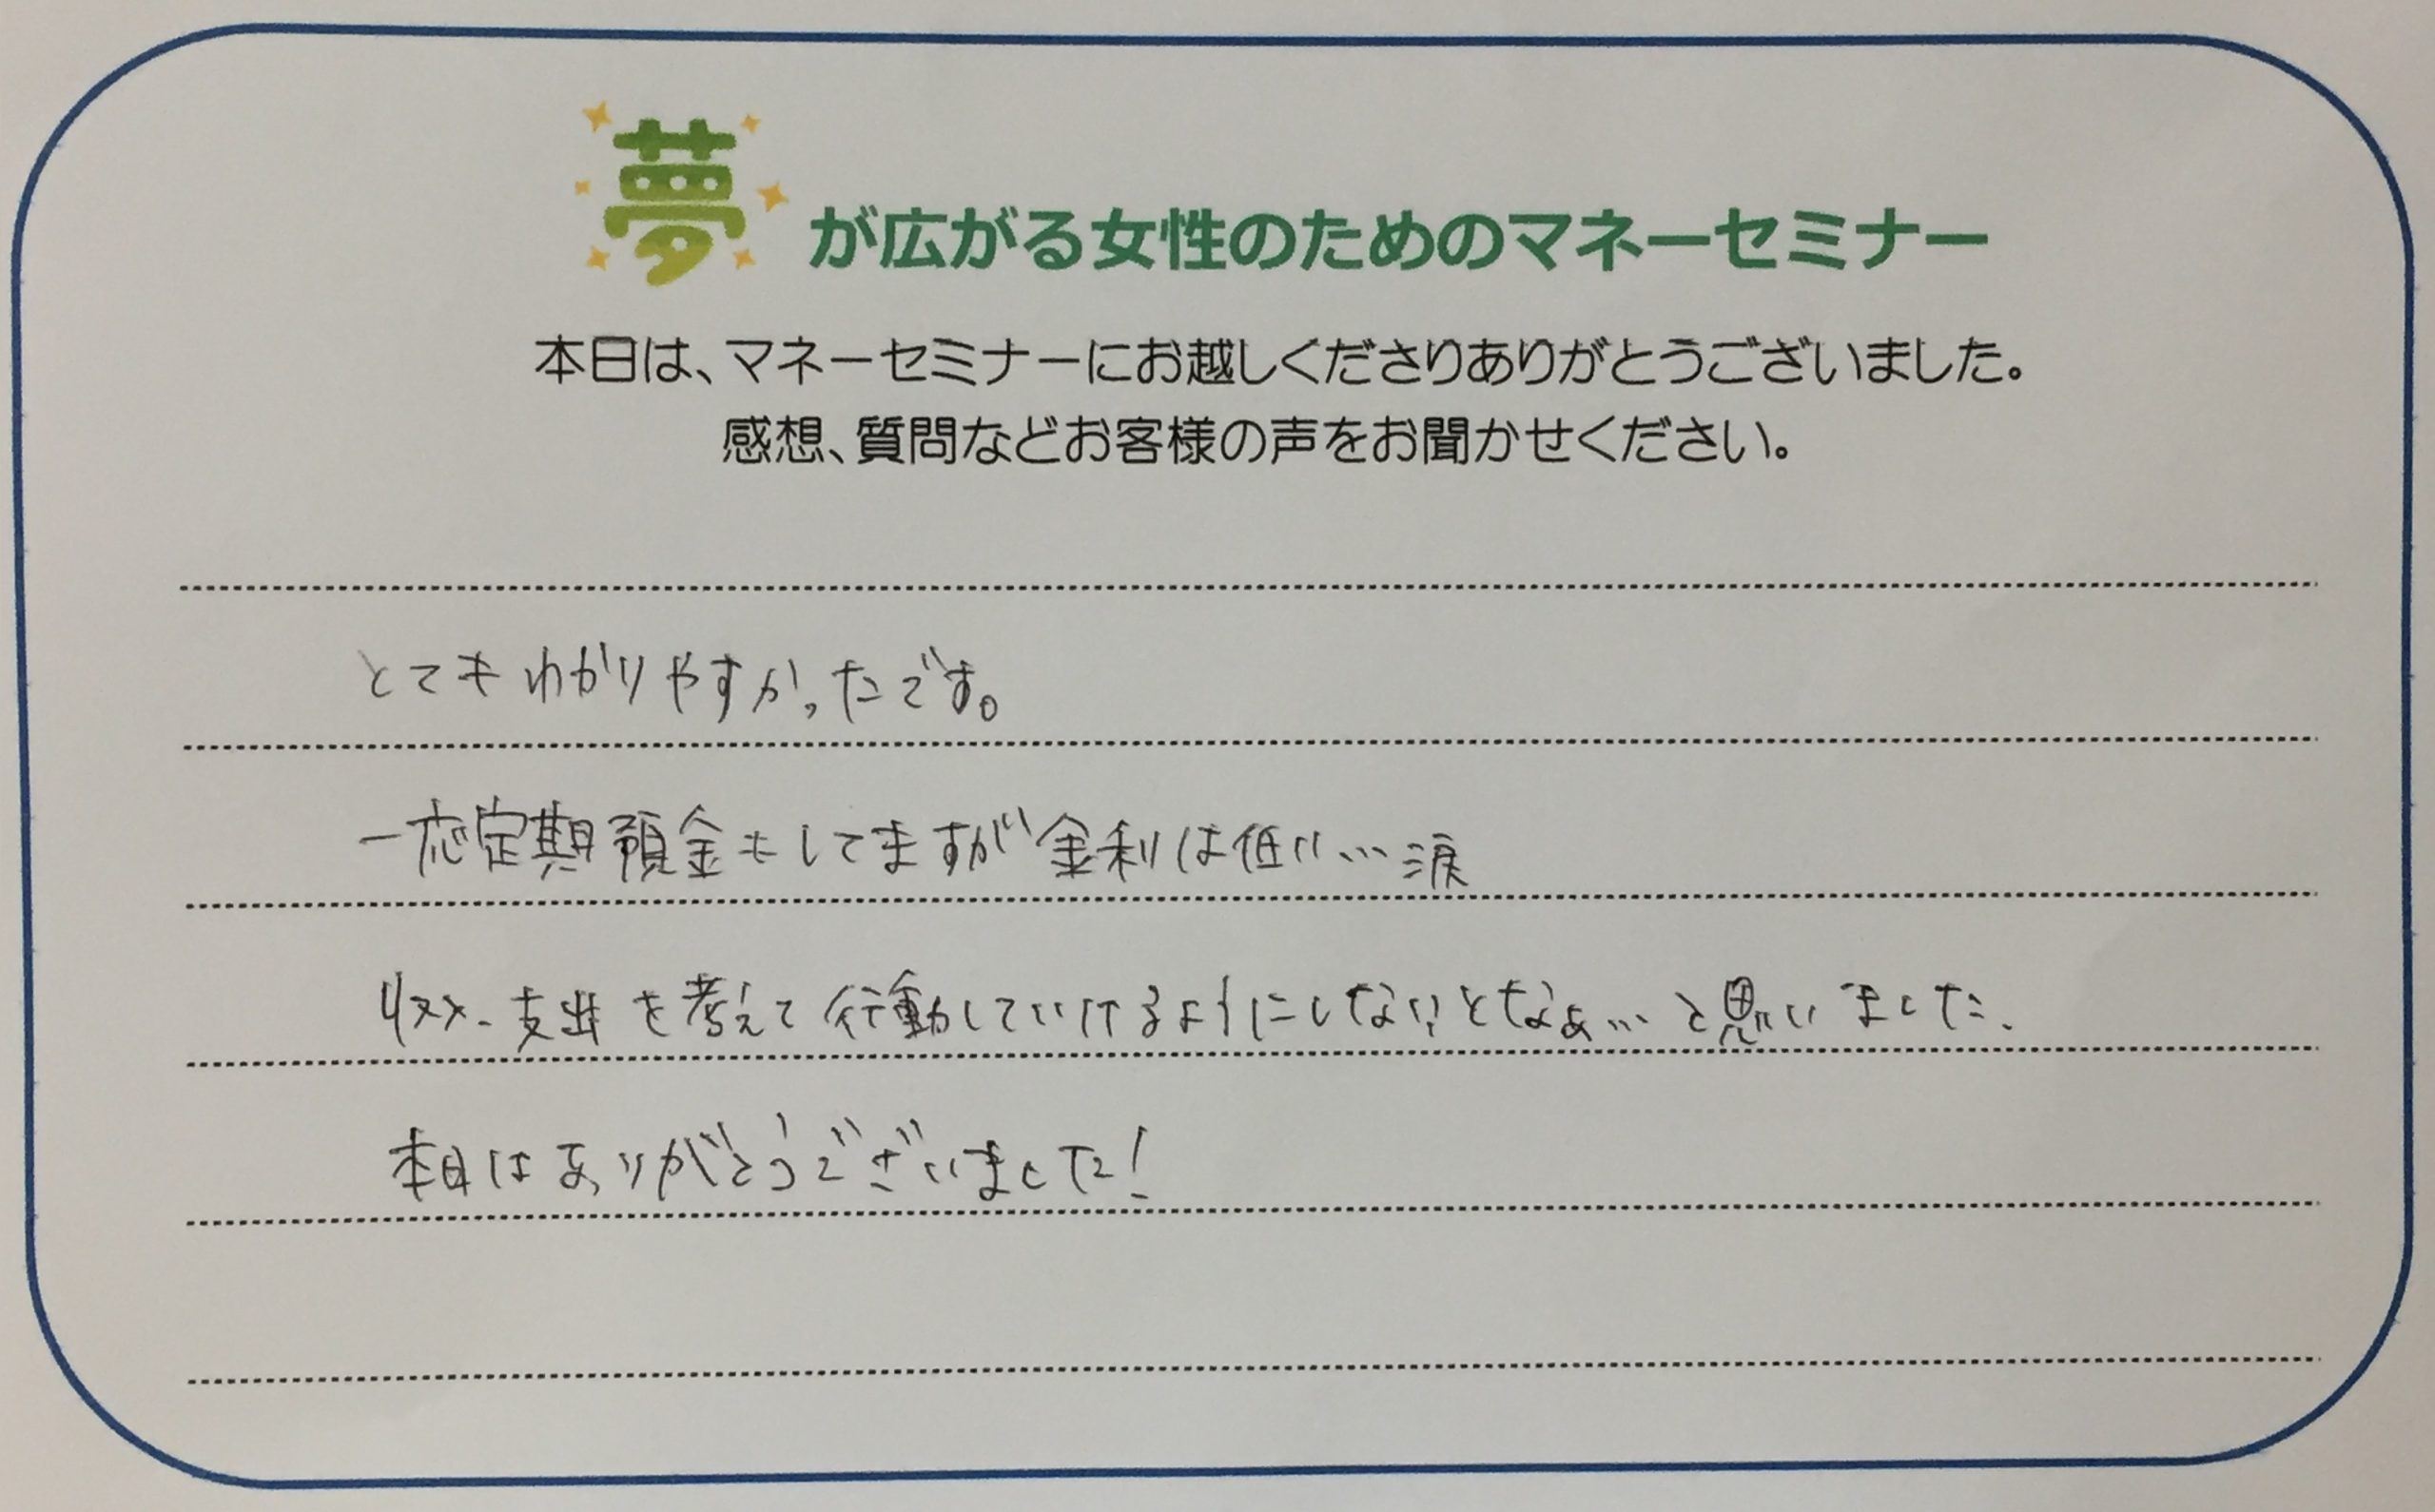 夢が広がる女性のためのマネーセミナー
本日は、マネーセミナーにお越しくださりありがとうございました。
感想、質問などお客様の声をお聞かせください。
とてもわかりやすかったです。
一応定期預金もしてますが金利は低い…涙
収入、支出を考えて行動していけるようにしないとなぁ…と思いました。
本日はありがとうございました！